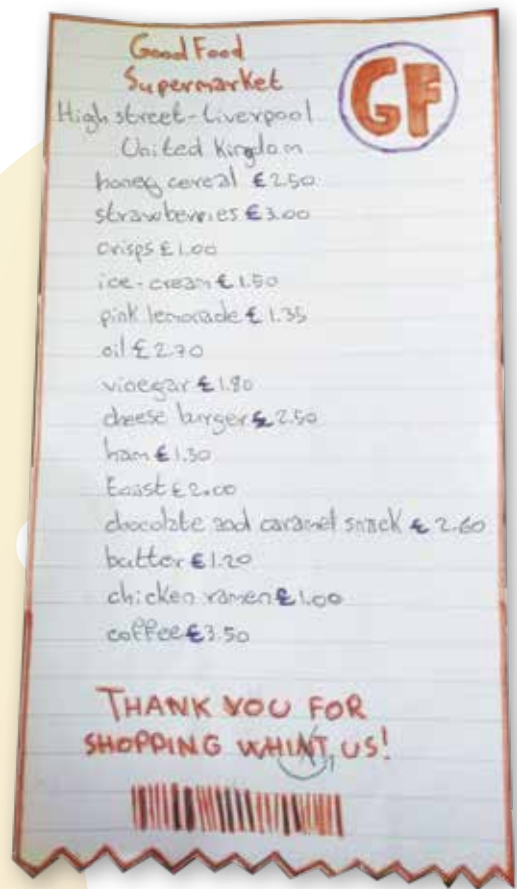 Good Food
Supermarket
GF
High street-Liverpool
United Kingdom
honey cereal £2.50
strawberries £3.00
crisps £1.00
ice-cream £1.50
pink lemonade £1.35
oil £2.70
vinegar £1.80
cheese burger £2.50
ham £1.50
toast £2.00
chocolate and caramel snack £2.60
butter £1.20
chicken ramen £1.00
coffee £3.50
THANK YOU FOR
SHOPPING US!